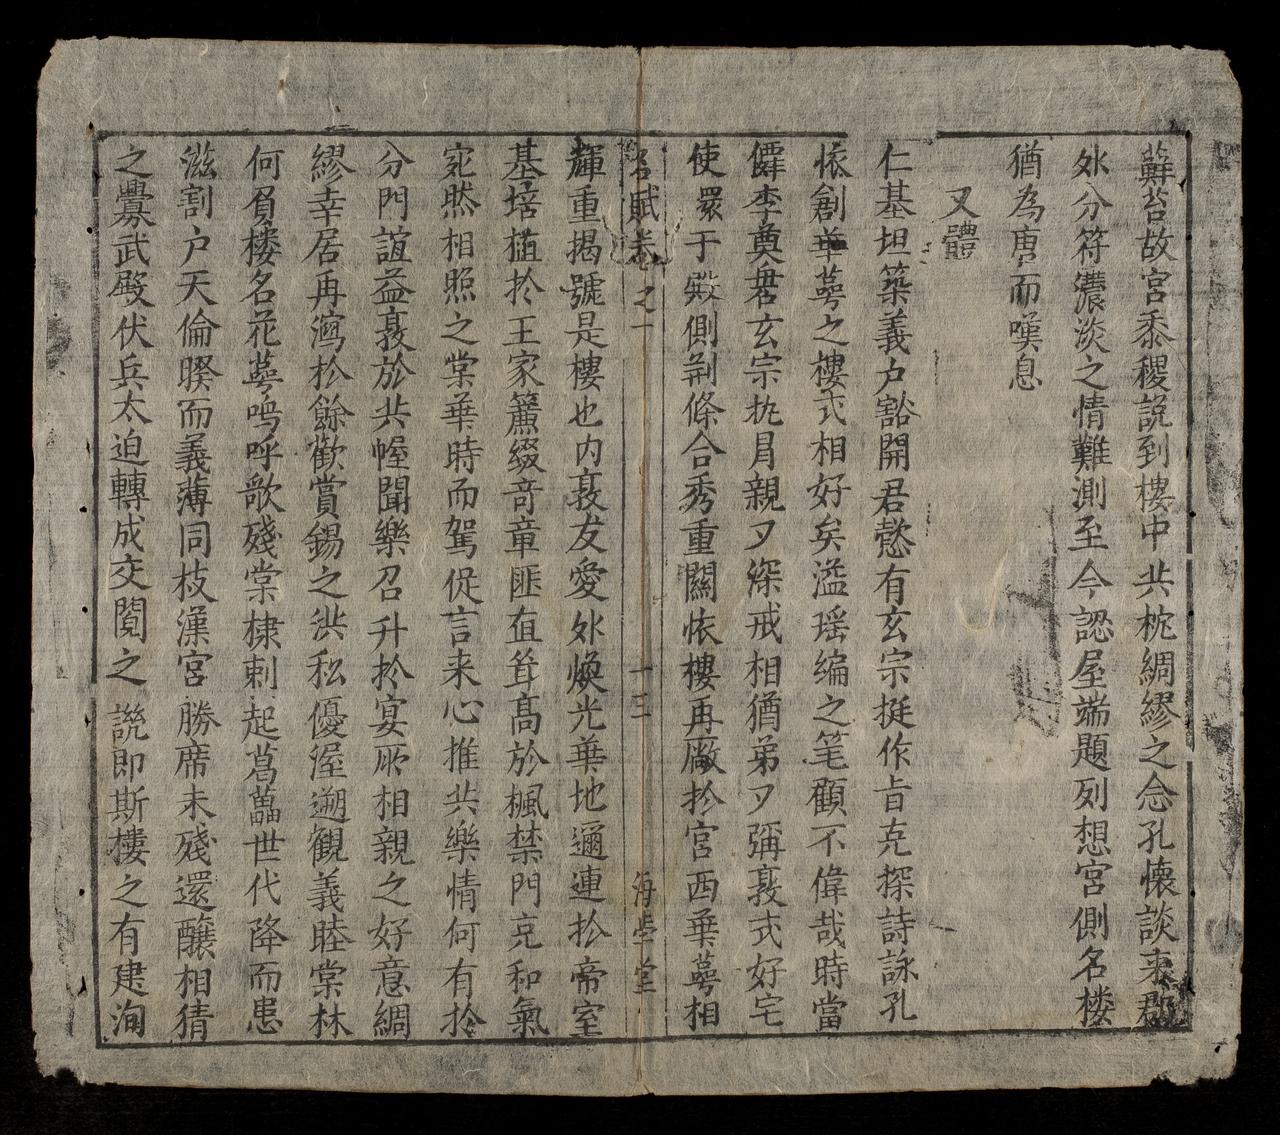 蘚苔故宮黍稷說到樓中共枕綢繆之念孔懷談東郡
外分符濃淡之情難測至今認屋端題列想宮側名楼
猶為唐而嘆息
又體
仁基坦築義户豁開君慗有玄宗挺作旨克探詩詠孔
懷創華萼之樓式相好矣溢瑤编之笔顧不偉哉時當
僻李奠君玄宗執冐親又深戒相猶弟又彌敦式好宅
使衆于殿側荆條合秀重闢懷樓再厰扵宮西華萼相
名賦巻之一
十三
海學堂
輝重揭號是樓也内敦友愛外煥光華地邇連扵帝室
基培植扵王家簾綴竒章匪直耸髙於楓禁門克和氣
宛然相照之棠華時而駕促言来心推共樂情何有扵
分門誼益敦於共幄聞樂召升扵宴所相親之好意綢
繆幸居再瀉於餘歡賞錫之洪私優渥遡観義睦棠林
何負楼名花萼嗚呼歌殘棠棣刺起葛藟世代降而患
滋割户天倫睽而義薄同枝漢宮勝席未殘還釀相猜
之釁武殿伏兵太迫轉成交䦧之説即斯樓之有建洵